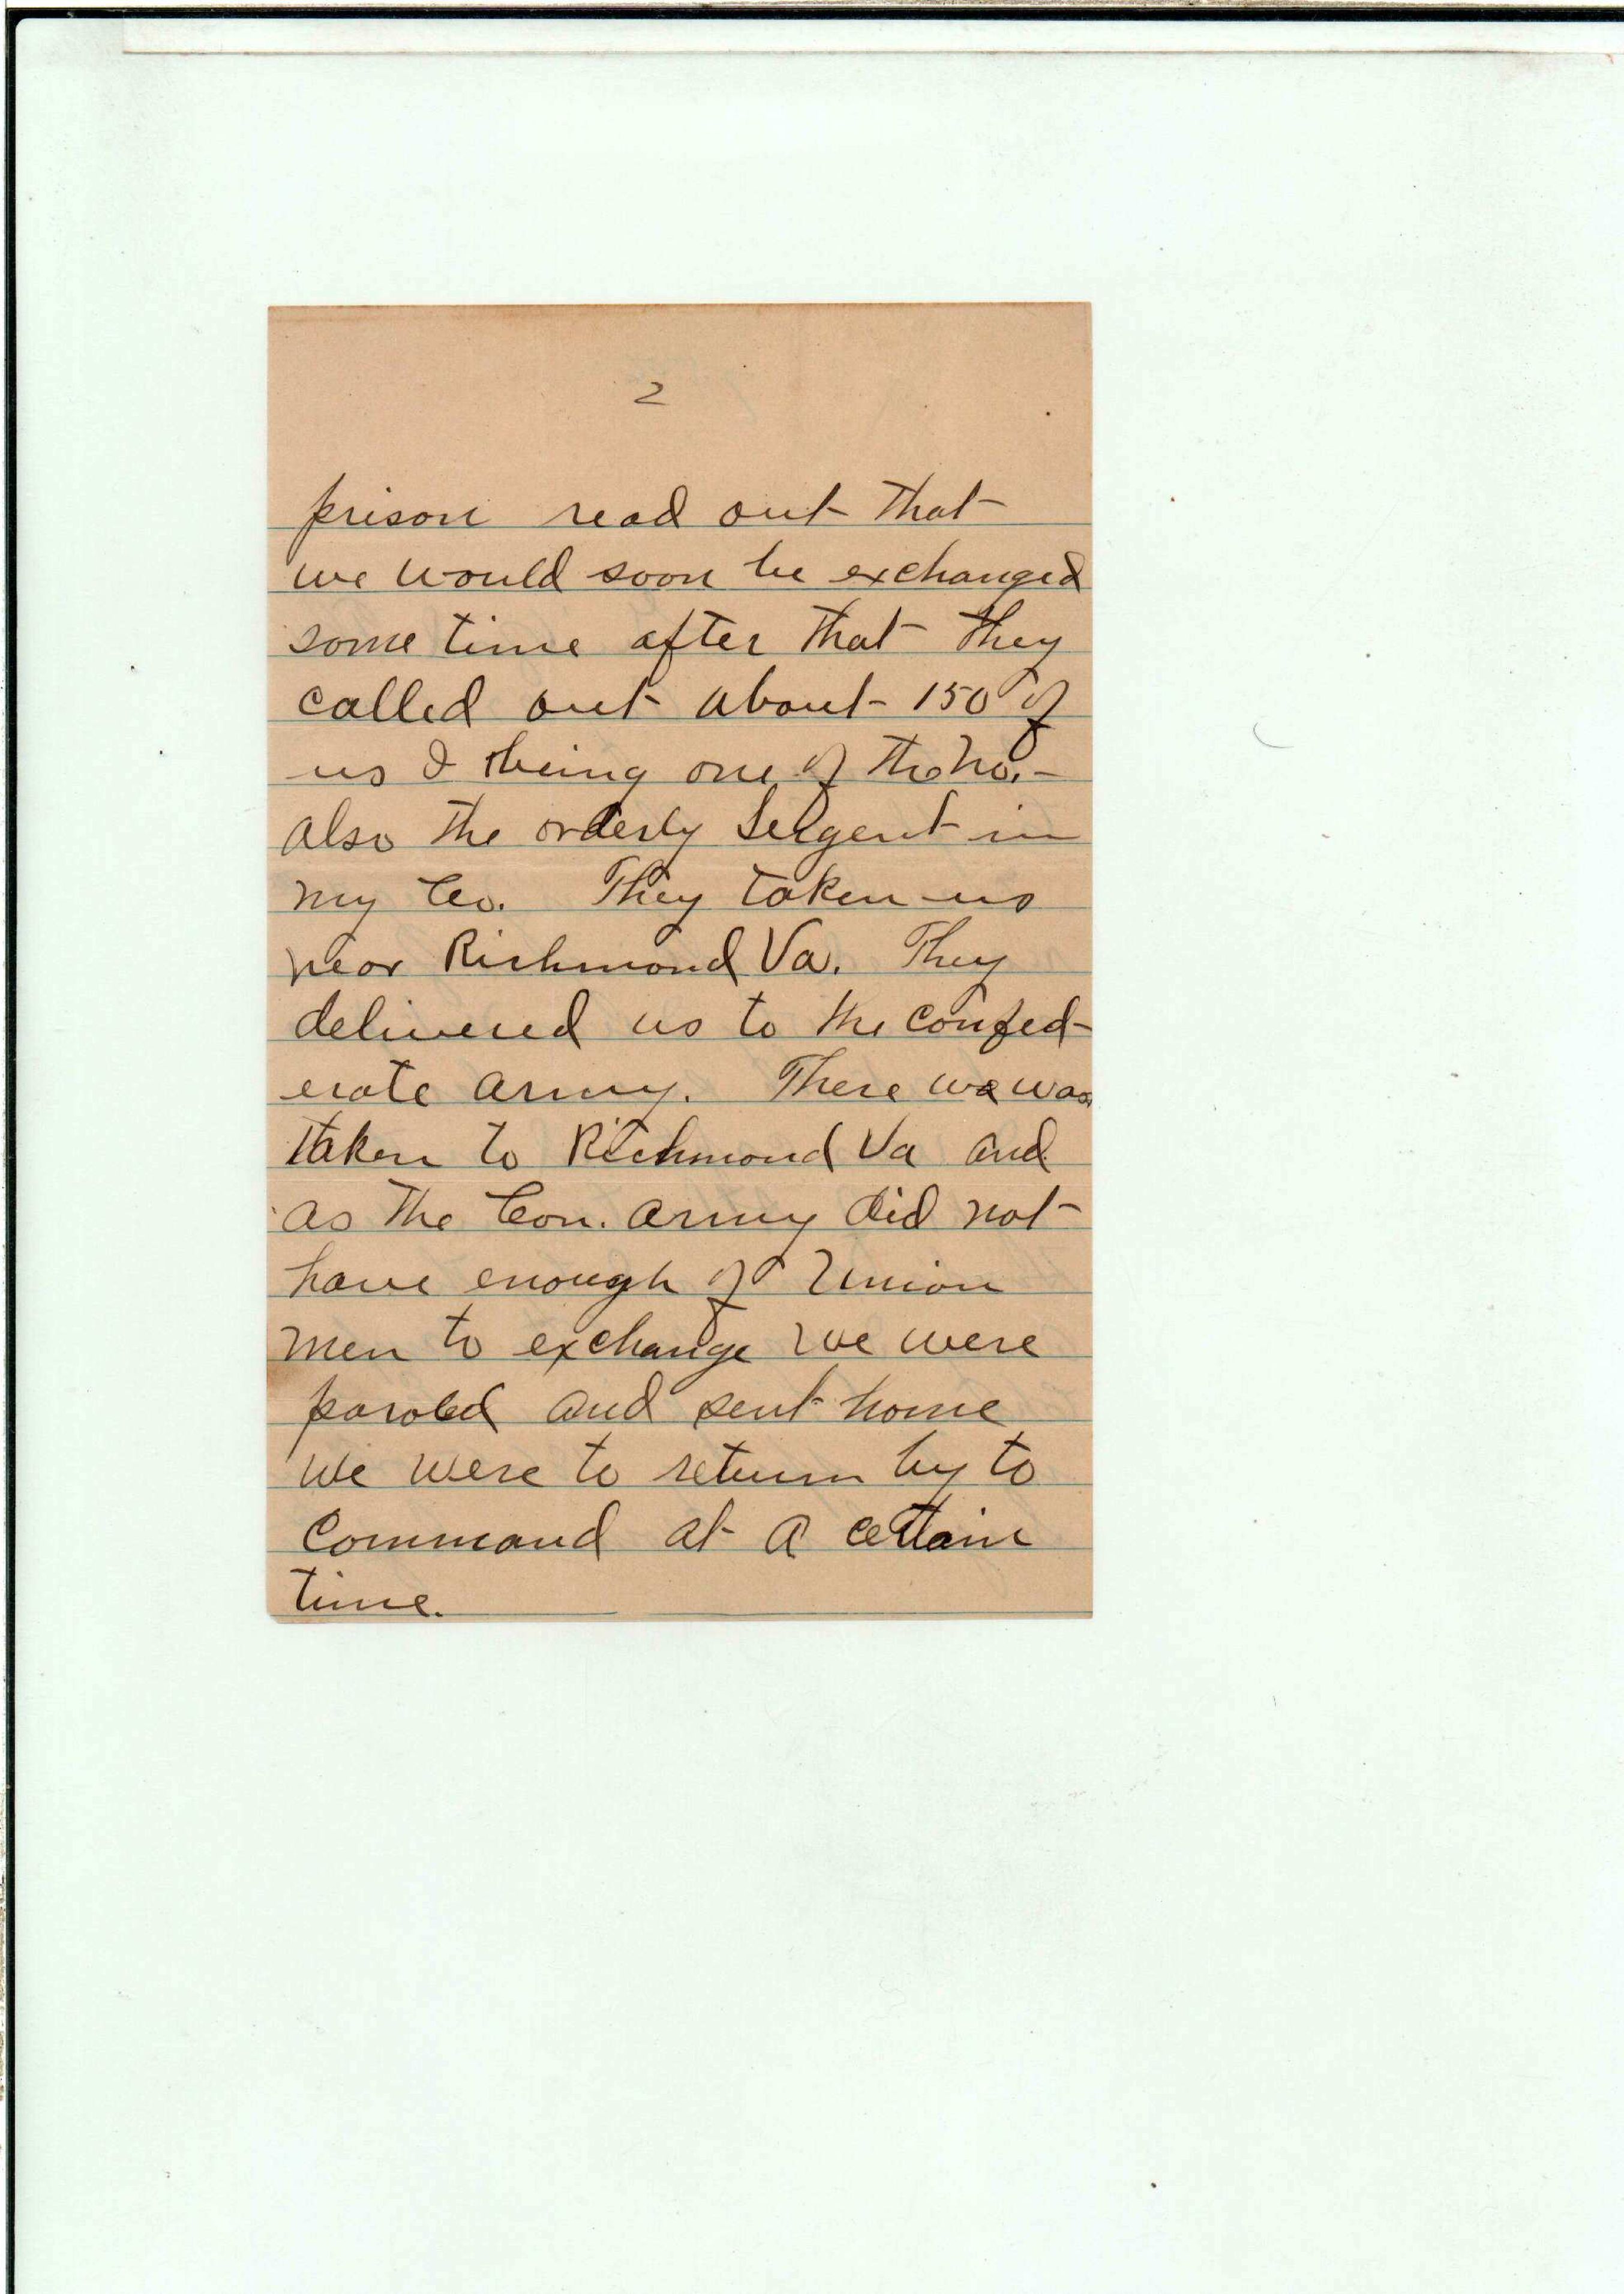 2
prison read out that
we would soon be exchanged
some time after that they
called out about 150 of
us I being one of the No.
also the orderly Sergent in
my Co. They taken us
near Richmond Va. They
delivered us to the confed-
erate army. There we was
taken to Richmond Va and
as the Con. army did not
have enough of Union
men to exchange we were
paroled and sent home
we were to return by to
command at a certain
time.